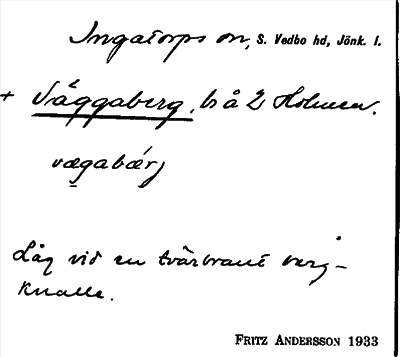 Ingatorps sn, S. Vedbo hd, Jönk. l.
+ Väggaberg, b å 2 Holmen.
vægabærj
Låg vid en tvärbrant berg-
knalle.
FRITZ ANDERSSON 1933